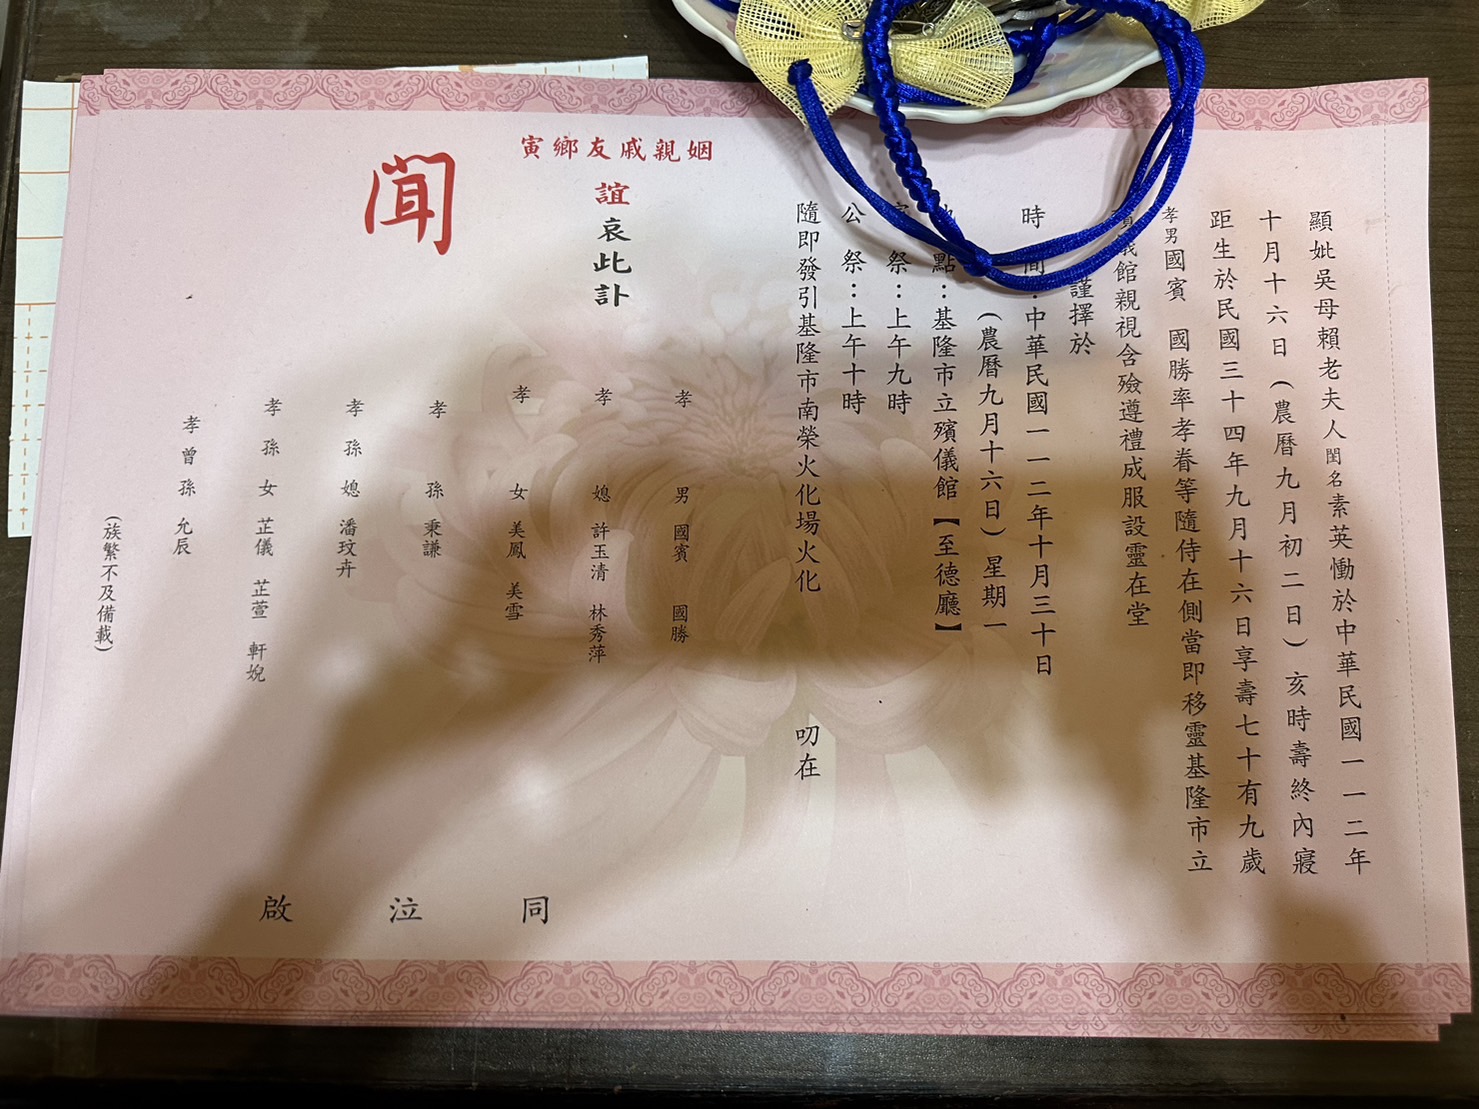 顯妣吳母賴老夫人閨名素英慟於中華民國一一二年
十月十六日(農曆九月初二日)亥時壽終內寢
距生於民國三十四年九月十六日享壽七十有九歲
孝男國賓 國勝率孝眷等隨侍在側當即移靈基隆市立
儀館親視含殮遵禮成服設靈在堂
謹擇於
時 間:中華民國一一二年十月三十日
(農曆九月十六日)星期一
點:基隆市立殯儀館【至德廳】
祭:上午九時
公 祭:上午十時
隨即發引基隆市南榮火化場火化 叨在
姻親戚友鄉寅
誼哀此訃
聞
孝 男 國賓 國勝
孝 媳 許玉清 林秀萍
孝 女 美鳳 美雪
孝 孫 秉謙
孝 孫 媳 潘玟卉
孝 孫 女 芷儀 芷萱 軒婗
孝 曾 孫 允辰
(族繁不及備載)
同 泣 啟